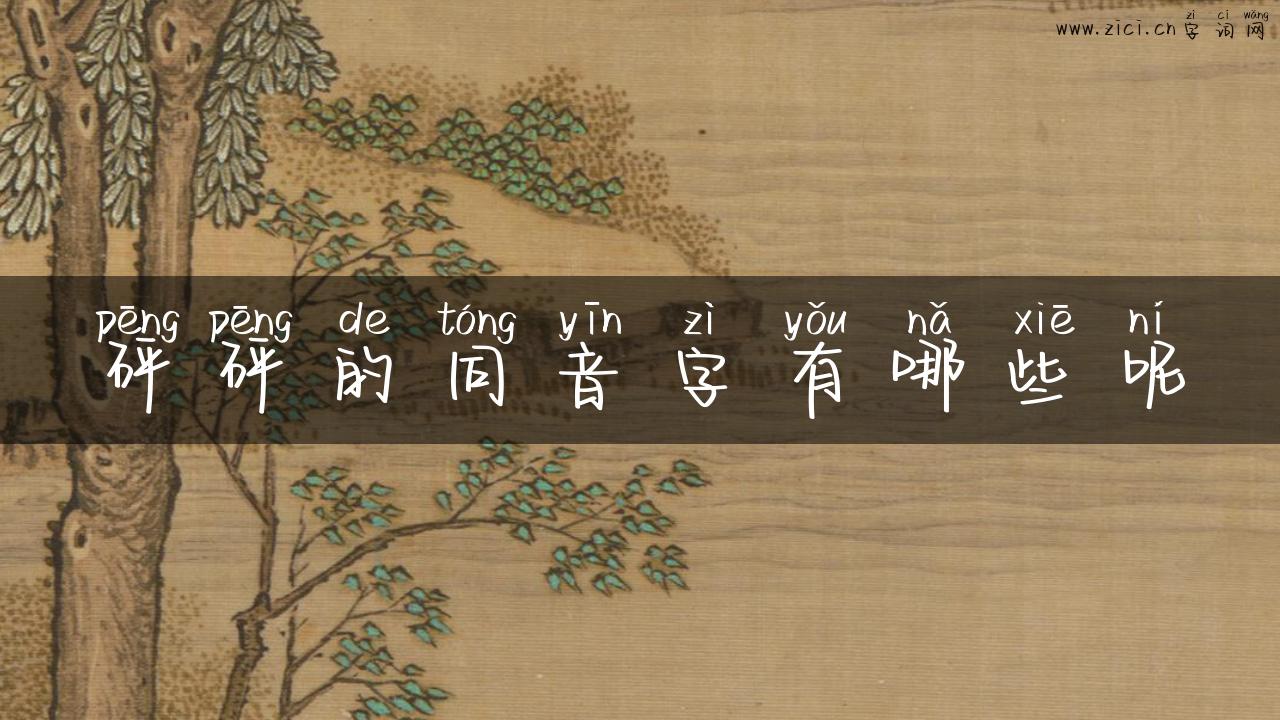 zì cí wǎng
www.zici.cn 字 词 网
pēng pēng de tóng yīn zì yǒu nǎ xiē ní
砰 砰 的 同 音 字 有 哪 些 呢